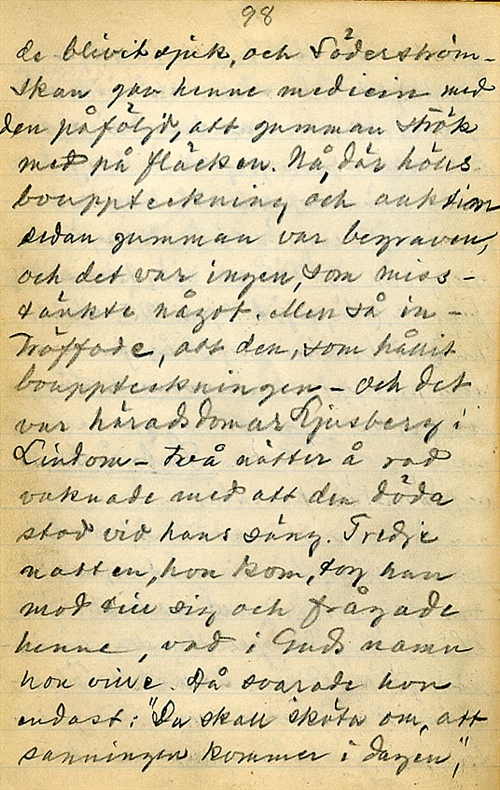 98
de blivit sjuk, och Söderström-
skan gav henne medicin med
den påföljd, att gumman strök
med på fläcken. Nå, där hölls
bouppteckning och auktion
sedan gumman var begraven,
och det var ingen, som miss-
tänkte något. Men så in-
träffade, att den, som hållit
bouppteckningen - och det
var häradsdomar Ljusberg i
Lindom - två nätter å rad
vaknade med att den döda
stod vid hans säng. Tredje
natten, hon kom, tog han
mod till sig och frågade
henne, vad i Guds namn
hon ville. Då svarade hon
endast: "Du skall sköta om, att
sanningen kommer i dagen",